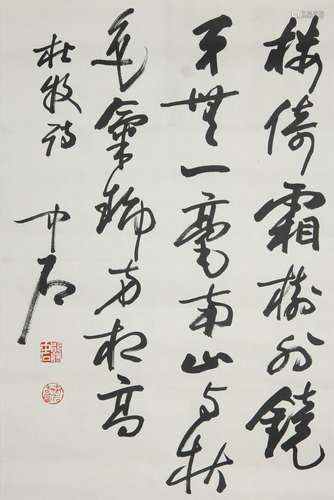 樓倚霜樹外鏡
天無一毫南山与秋
色氣勢兩相高
杜牧詩
中石